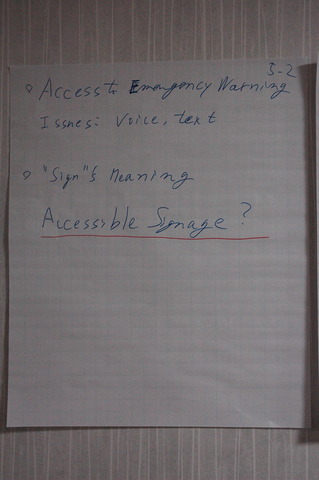 5-2
◦ Access to Emergency Warning
Issues: Voice, text
◦ "Sign"'s Meaning
Accessible Signage?